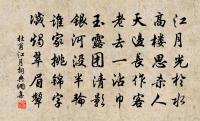 江月光於水
高樓思殺人
天邊長作客
老去一沾巾
玉露團清影
銀河沒半輪
誰家挑錦字
滅燭翠眉顰
杜甫江月詞典網書